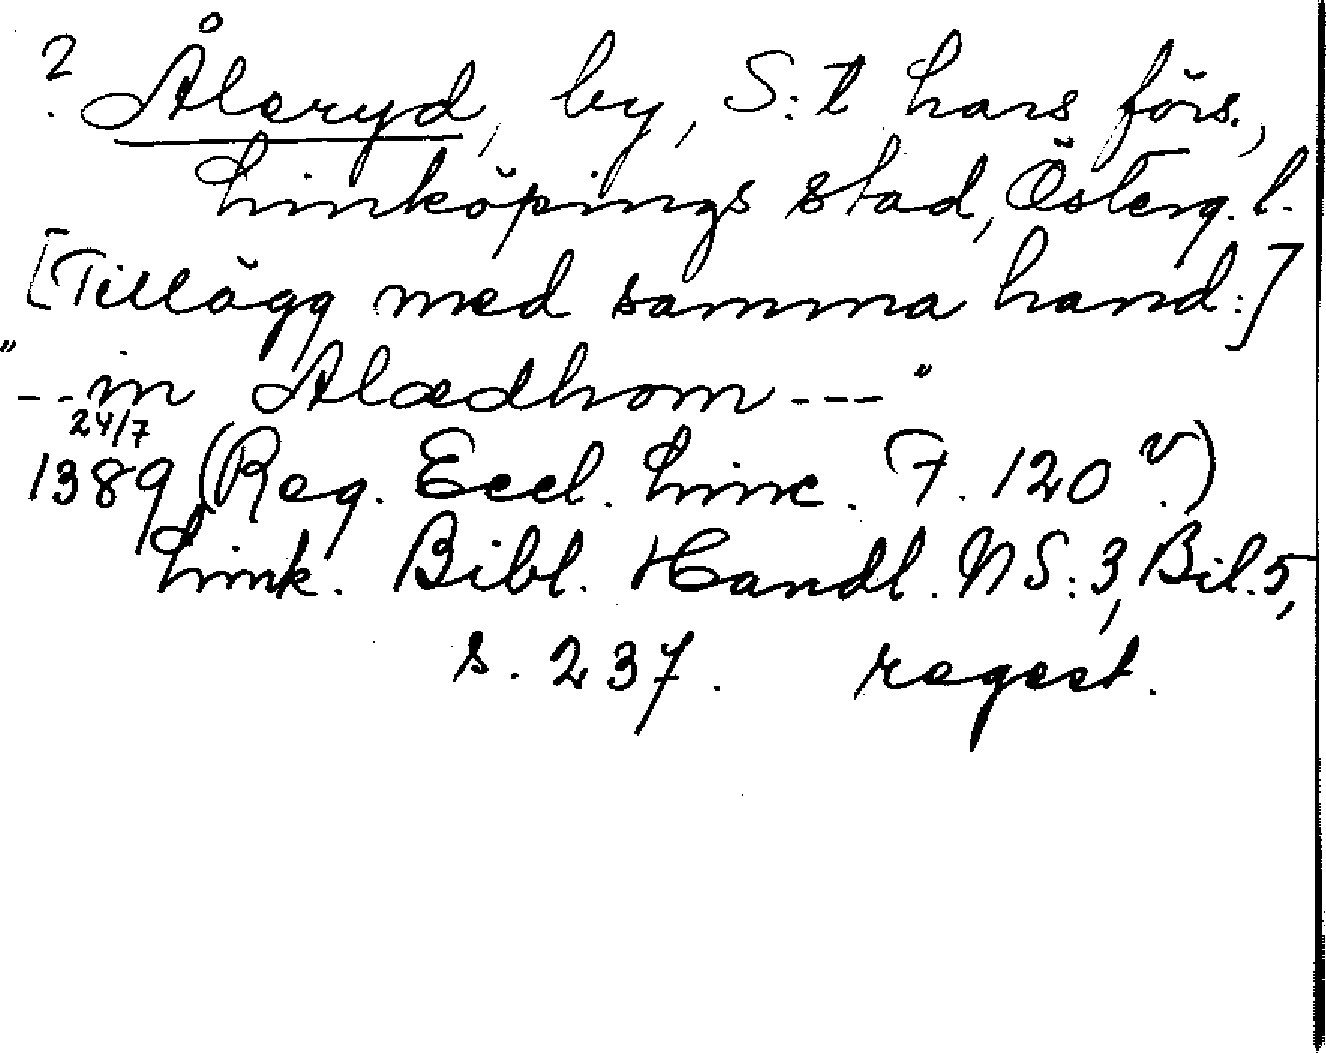 ? Åleryd, by, S:t Lars förs.,
Linköpings stad, Österg. l.
[Tillägg med samma hand:]
"--in Alædhom---"
24/7
1389 (Reg. Eccl. Linc. F. 120 v.)
Link. Bibl. Handl. NS:3, Bil.5,
s. 237. regest.